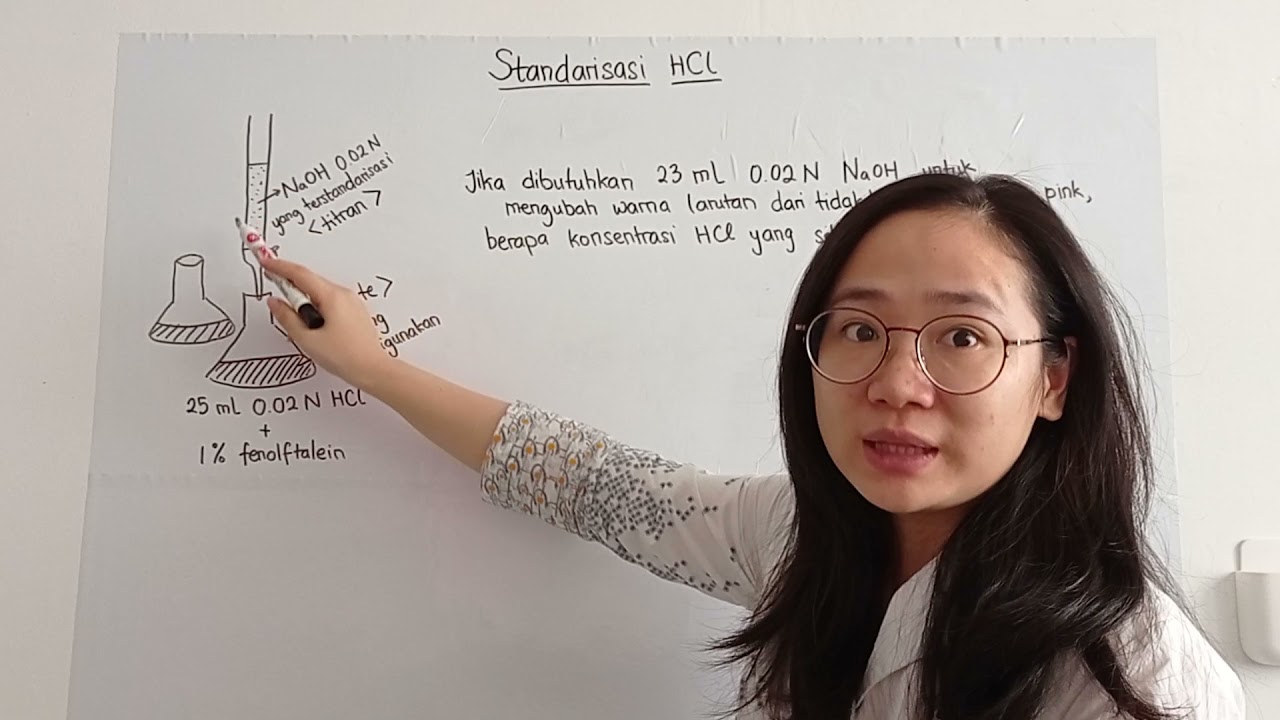 Standarisasi HCl
NaOH 0.02 N
yang terstandarisasi
<titran>
25 ml 0.02 N HCl
+
1% fenolftalein
Jika dibutuhkan 23 ml 0.02 N NaOH untuk
mengubah warna larutan dari pink,
berapa konsentrasi HCl yang